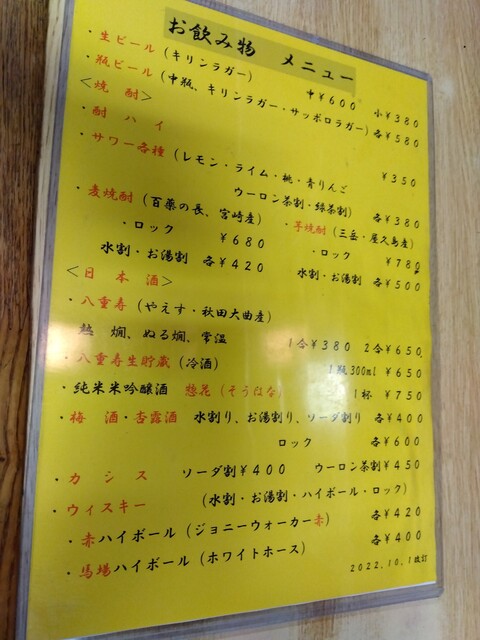 お飲み物 メニュー
・生ビール(キリンラガー) 中¥600 小¥380
・瓶ビール(中瓶、キリンラガー・サッポロラガー)各¥580
<焼酎>
・酎ハイ ¥350
・サワー各種(レモン・ライム・桃・青りんご
ウーロン茶割・緑茶割) 各¥380
・麦焼酎(百薬の長、宮崎産) ・芋焼酎(三岳・屋久島産)
・ロック ¥680 ・ロック ¥780
水割・お湯割 各¥420 水割・お湯割 各¥500
<日本酒>
・八重寿(やえす・秋田大曲産)
熱燗、ぬる燗、常温 1合¥380 2合¥650
・八重寿生貯蔵(冷酒) 1瓶300ml ¥650
・純米米吟醸酒 惣花(そうはな) 1杯 ¥750
・梅酒・杏露酒 水割り、お湯割り、ソーダ割り 各¥400
ロック 各¥600
・カシス ソーダ割¥400 ウーロン茶割¥450
・ウィスキー (水割・お湯割・ハイボール・ロック)
・赤ハイボール(ジョニーウォーカー赤) 各¥420
・馬場ハイボール(ホワイトホース) 各¥400
2022.10.1改訂